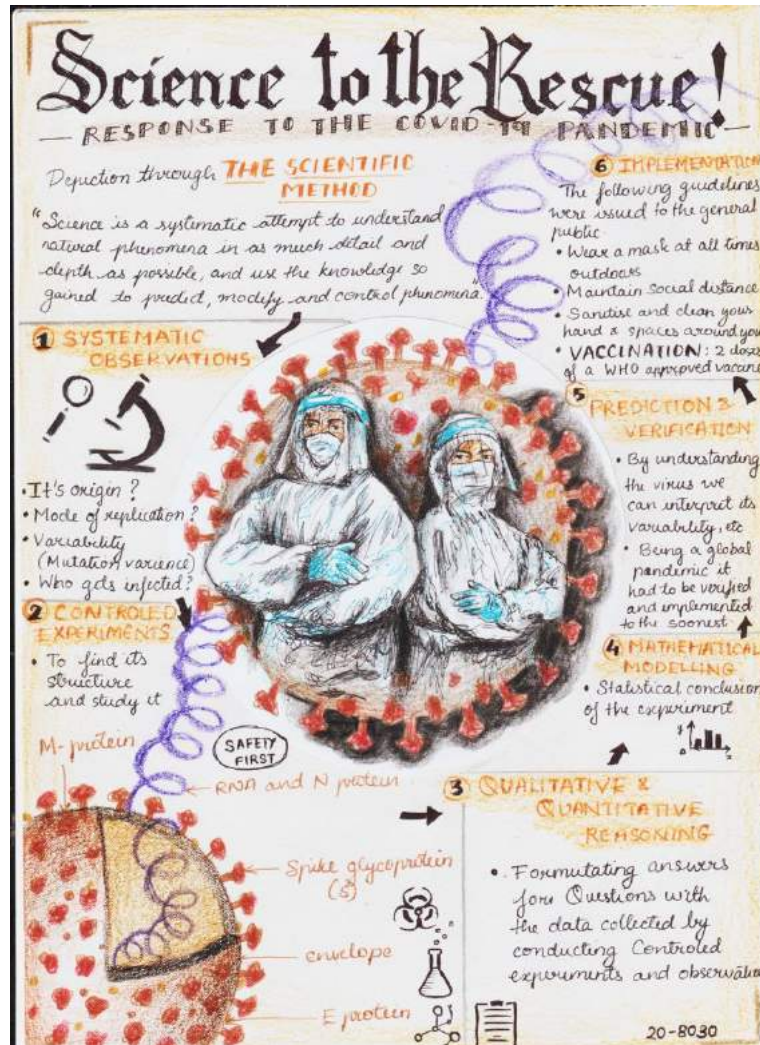 Science to the Rescue!
— RESPONSE TO THE COVID-19 PANDEMIC —
Depiction through THE SCIENTIFIC
METHOD
"Science is a systematic attempt to understand
natural phenomena in as much detail and
depth as possible, and use the knowledge so
gained to predict, modify and control phenomena."
1 SYSTEMATIC
OBSERVATIONS
• It's origin?
• Mode of replication?
• Variability
(Mutation varience)
• Who gets infected?
2 CONTROLED
EXPERIMENTS
• To find its
structure
and study it
M-protein
SAFETY
FIRST
RNA and N protein
Spike glycoprotein
(S)
envelope
E protein
3 QUALITATIVE &
QUANTITATIVE
REASONING
• Formutating answers
for Questions with
the data collected by
conducting Controled
experiments and observation
4 MATHEMATICAL
MODELLING
• Statistical conclusion
of the experiment
5 PREDICTION &
VERIFICATION
• By understanding
the virus we
can interpret its
variability, etc
• Being a global
pandemic it
had to be verified
and implemented
to the soonest
6 IMPLEMENTATION
The following guidelines
were issued to the general
public.
• Wear a mask at all times
outdoors
• Maintain social distance
• Sanitise and clean your
hand & spaces around you
• VACCINATION: 2 doses
of a WHO approved vaccine
20-8030